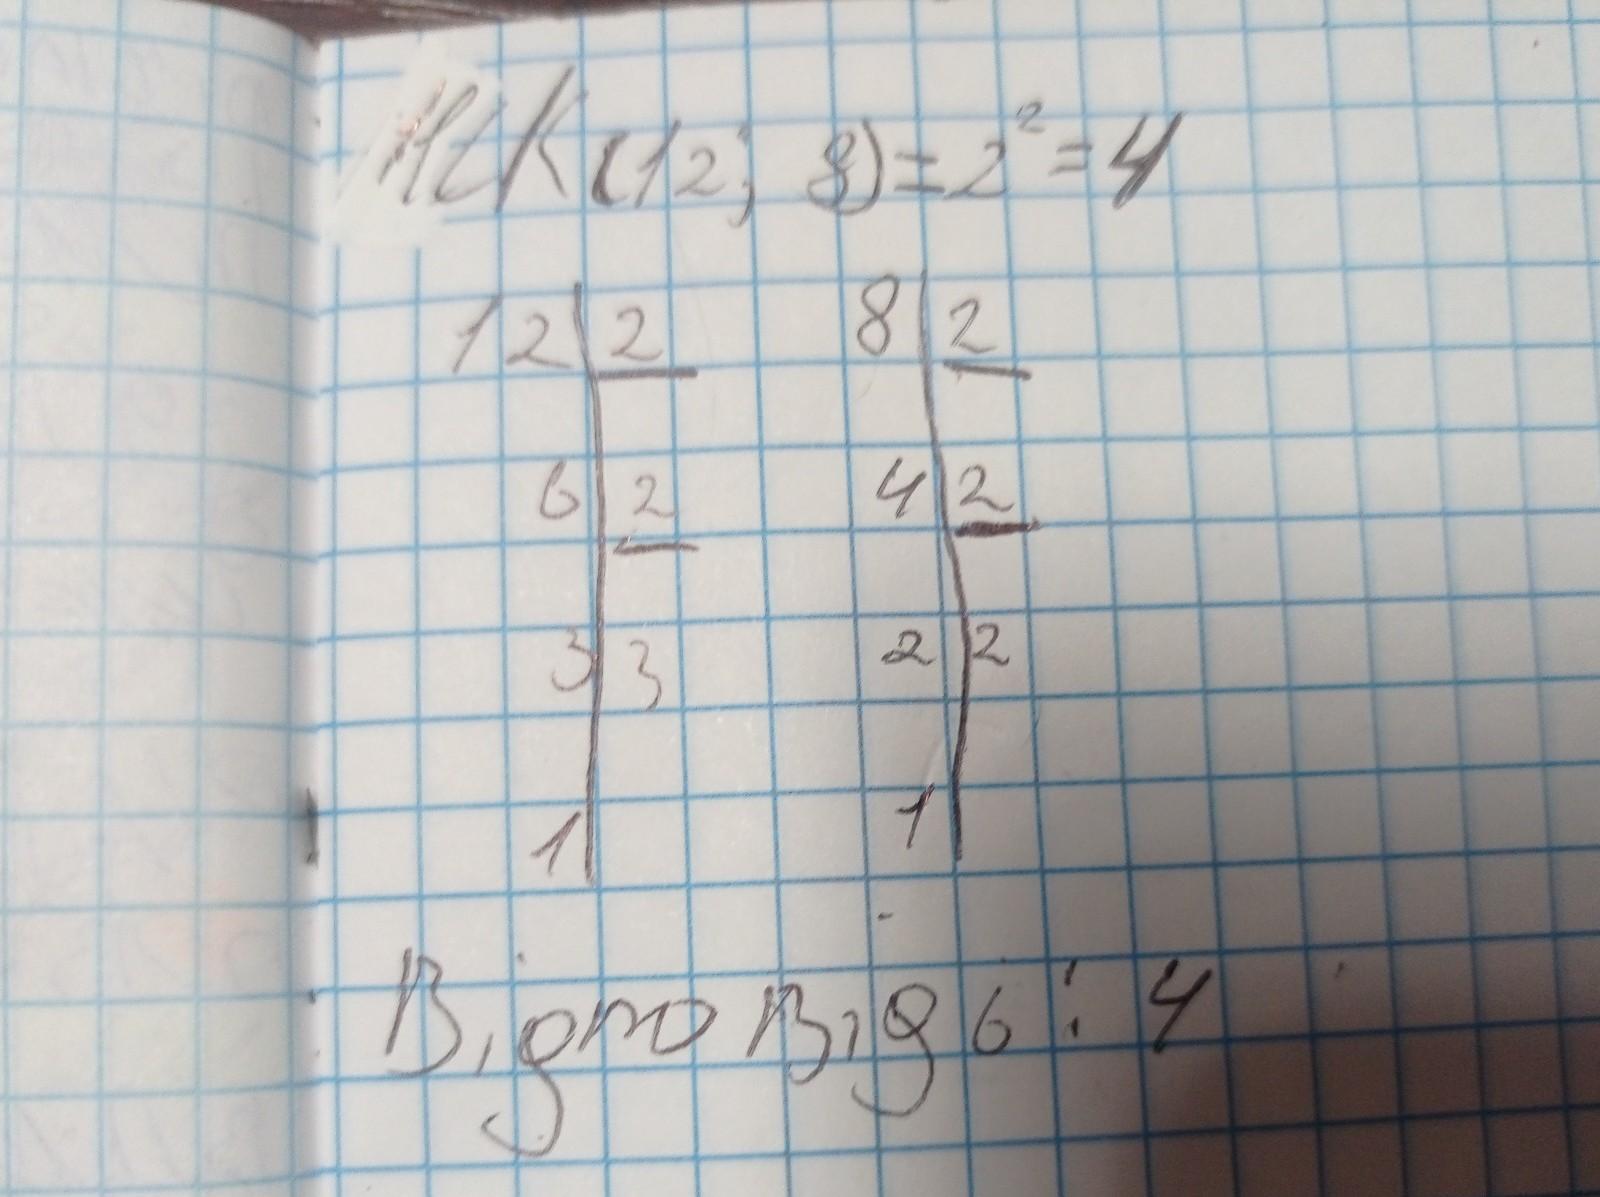 НСК(12; 8)=2²=4
12|2 8|2
6|2 4|2
3|3 2|2
1| 1|
Відповідь: 4